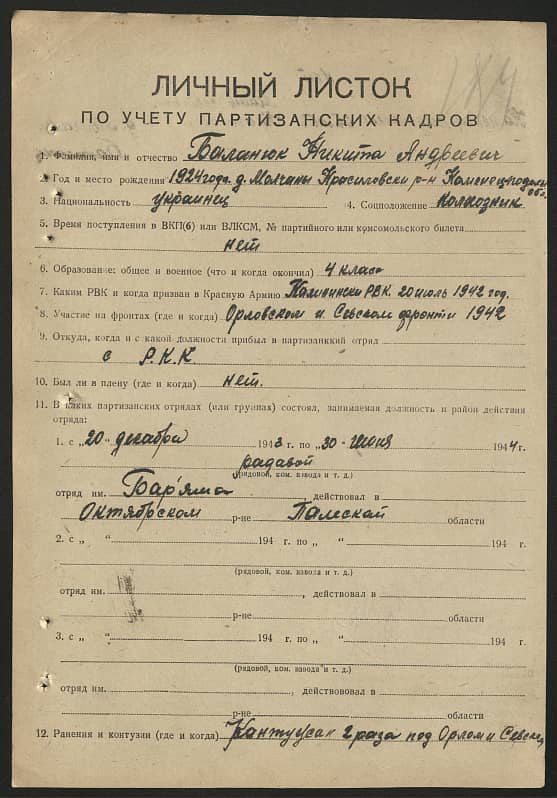 ЛИЧНЫЙ ЛИСТОК
ПО УЧЕТУ ПАРТИЗАНСКИХ КАДРОВ
1. Фамилия, имя и отчество Баланюк Никита Андреевич
2. Год и место рождения 1924 года д. Молчаны Красиловски р-н Каменец-Подольск обл.
3. Национальность украинец 4. Соцположение колхозник
5. Время поступления в ВКП(б) или ВЛКСМ, № партийного или комсомольского билета
нет
6. Образование: общее и военное (что и когда окончил) 4 класс
7. Каким РВК и когда призван в Красную Армию Калинински РВК. 20 июль 1942 год.
8. Участие на фронтах (где и когда) Орловском и Севском фронти 1942
9. Откуда, когда и с какой должности прибыл в партизанский отряд
с Р.К.К
10. Был ли в плену (где и когда) нет.
11. В каких партизанских отрядах (или группах) состоял, занимаемая должность и район действия
отряда:
1. с „20" декабри 1943 г. по „30" июня 1944 г.
радавой
(рядовой, ком. взвода и т. д.)
отряд им. , действовал в
Октябрском р-не Палеской области
2. с „ " 194 г. по „ " 194 г.
(рядовой, ком. взвода и т. д.)
отряд им. , действовал в
р-не области
3. с „ " 194 г. по „ " 194 г.
(рядовой, ком. взвода и т. д.)
отряд им. , действововал в
р-не области
12. Ранения и контузии (где и когда) 2 раза под Орлом и